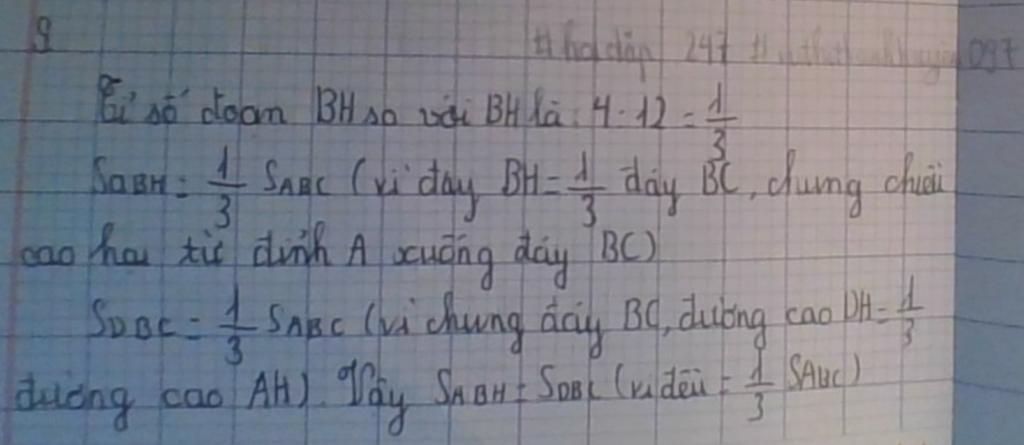 9
#hoidap 247 097
Tỉ số đoạn BH so với BH là: 4:12 = 1/3
SABH = 1/3 SABC (vì đáy BH = 1/3 đáy BC, chung chiều
cao hạ từ đỉnh A xuống đáy BC)
SDBC = 1/3 SABC (vì chung đáy BC, đường cao DH = 1/3
đường cao AH). Vậy SABH = SDBC (vì đều = 1/3 SABC)